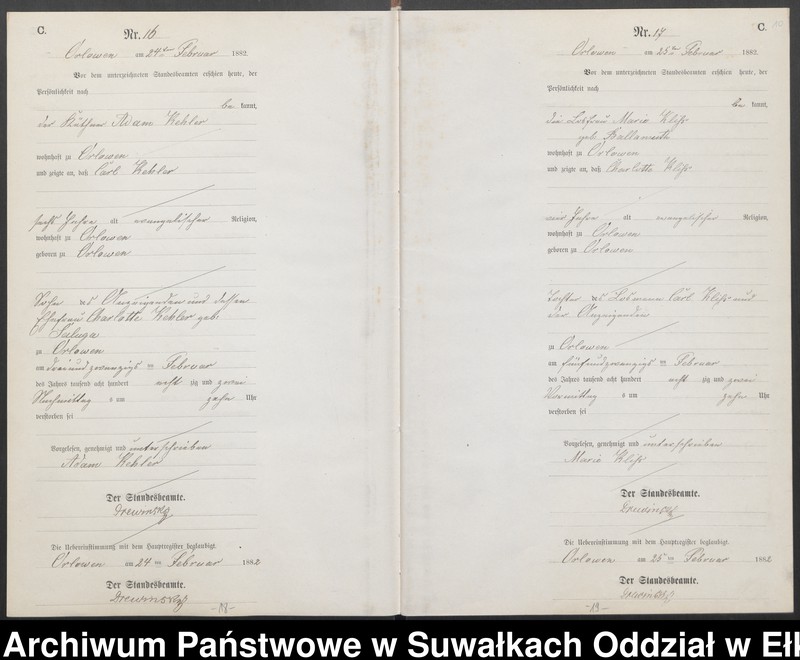 C.
Nr. 16
Orlowen am 24ten Februar 1882.
Vor dem unterzeichneten Standesbeamten erschien heute, der
Persönlichkeit nach
be kannt,
der Käthner Adam Kehler
wohnhaft zu Orlowen
und zeigte an, daß Carl Kehler
sechs Jahre alt evangelischer Religion,
wohnhaft zu Orlowen
geboren zu Orlowen
Sohn des Anzeigenden und dessen
Ehefrau Charlotte Kehler geb.
Saluga
zu Orlowen
am dreiundzwanzigsten Februar
des Jahres tausend acht hundert acht zig und zwei
Nachmittag s um zehn Uhr
verstorben sei
Vorgelesen, genehmigt und unterschrieben
Adam Kehler
Der Standesbeamte.
Drewinsky
Die Uebereinstimmung mit dem Hauptregister beglaubigt.
Orlowen am 24ten Februar 1882
Der Standesbeamte.
Drewinsky
-18-
C.
Nr. 17
Orlowen am 25ten Februar 1882.
Vor dem unterzeichneten Standesbeamten erschien heute, der
Persönlichkeit nach
be kannt,
die Losfrau Marie Kliss
geb.
wohnhaft zu Orlowen
und zeigte an, daß Charlotte Kliss
vier Jahre alt evangelischer Religion,
wohnhaft zu Orlowen
geboren zu Orlowen
Tochter des Losmann Carl Kliss und
der Anzeigenden
zu Orlowen
am fünfundzwanzigsten Februar
des Jahres tausend acht hundert acht zig und zwei
Vormittag s um zehn Uhr
verstorben sei
Vorgelesen, genehmigt und unterschrieben
Marie Kliss
Der Standesbeamte.
Drewinsky
Die Uebereinstimmung mit dem Hauptregister beglaubigt.
Orlowen am 25ten Februar 1882
Der Standesbeamte.
Drewinsky
-19-
Archiwum Państwowe w Suwałkach Oddział w Ełk